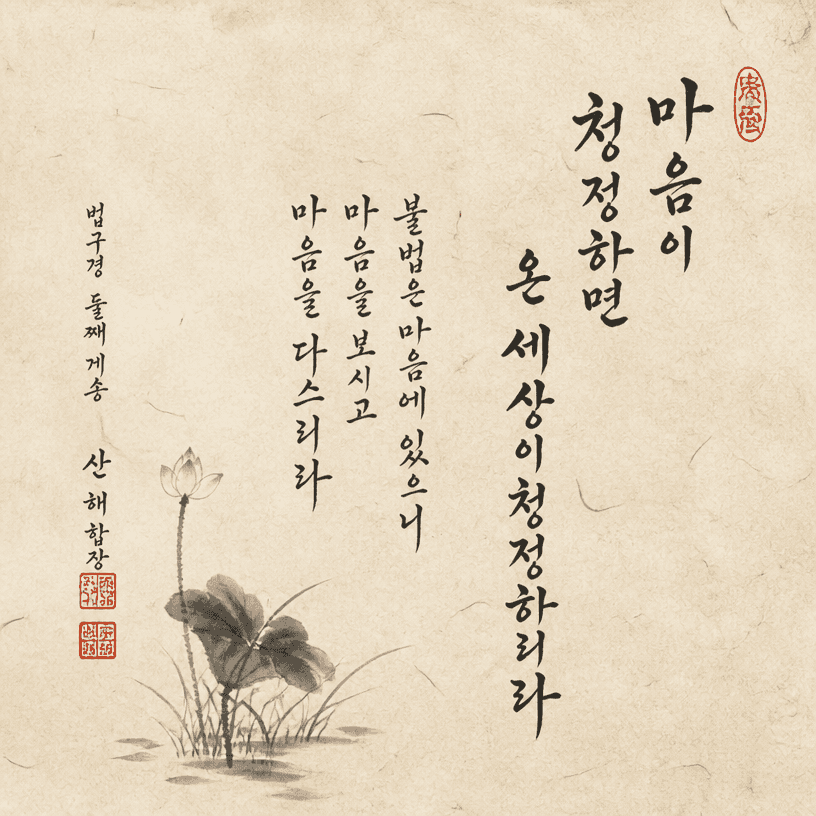 마음이
청정하면
온 세상이 청정하리라
불법은 마음에 있으니
마음을 보시고
마음을 다스리라
법구경 둘째 게송 산해합장